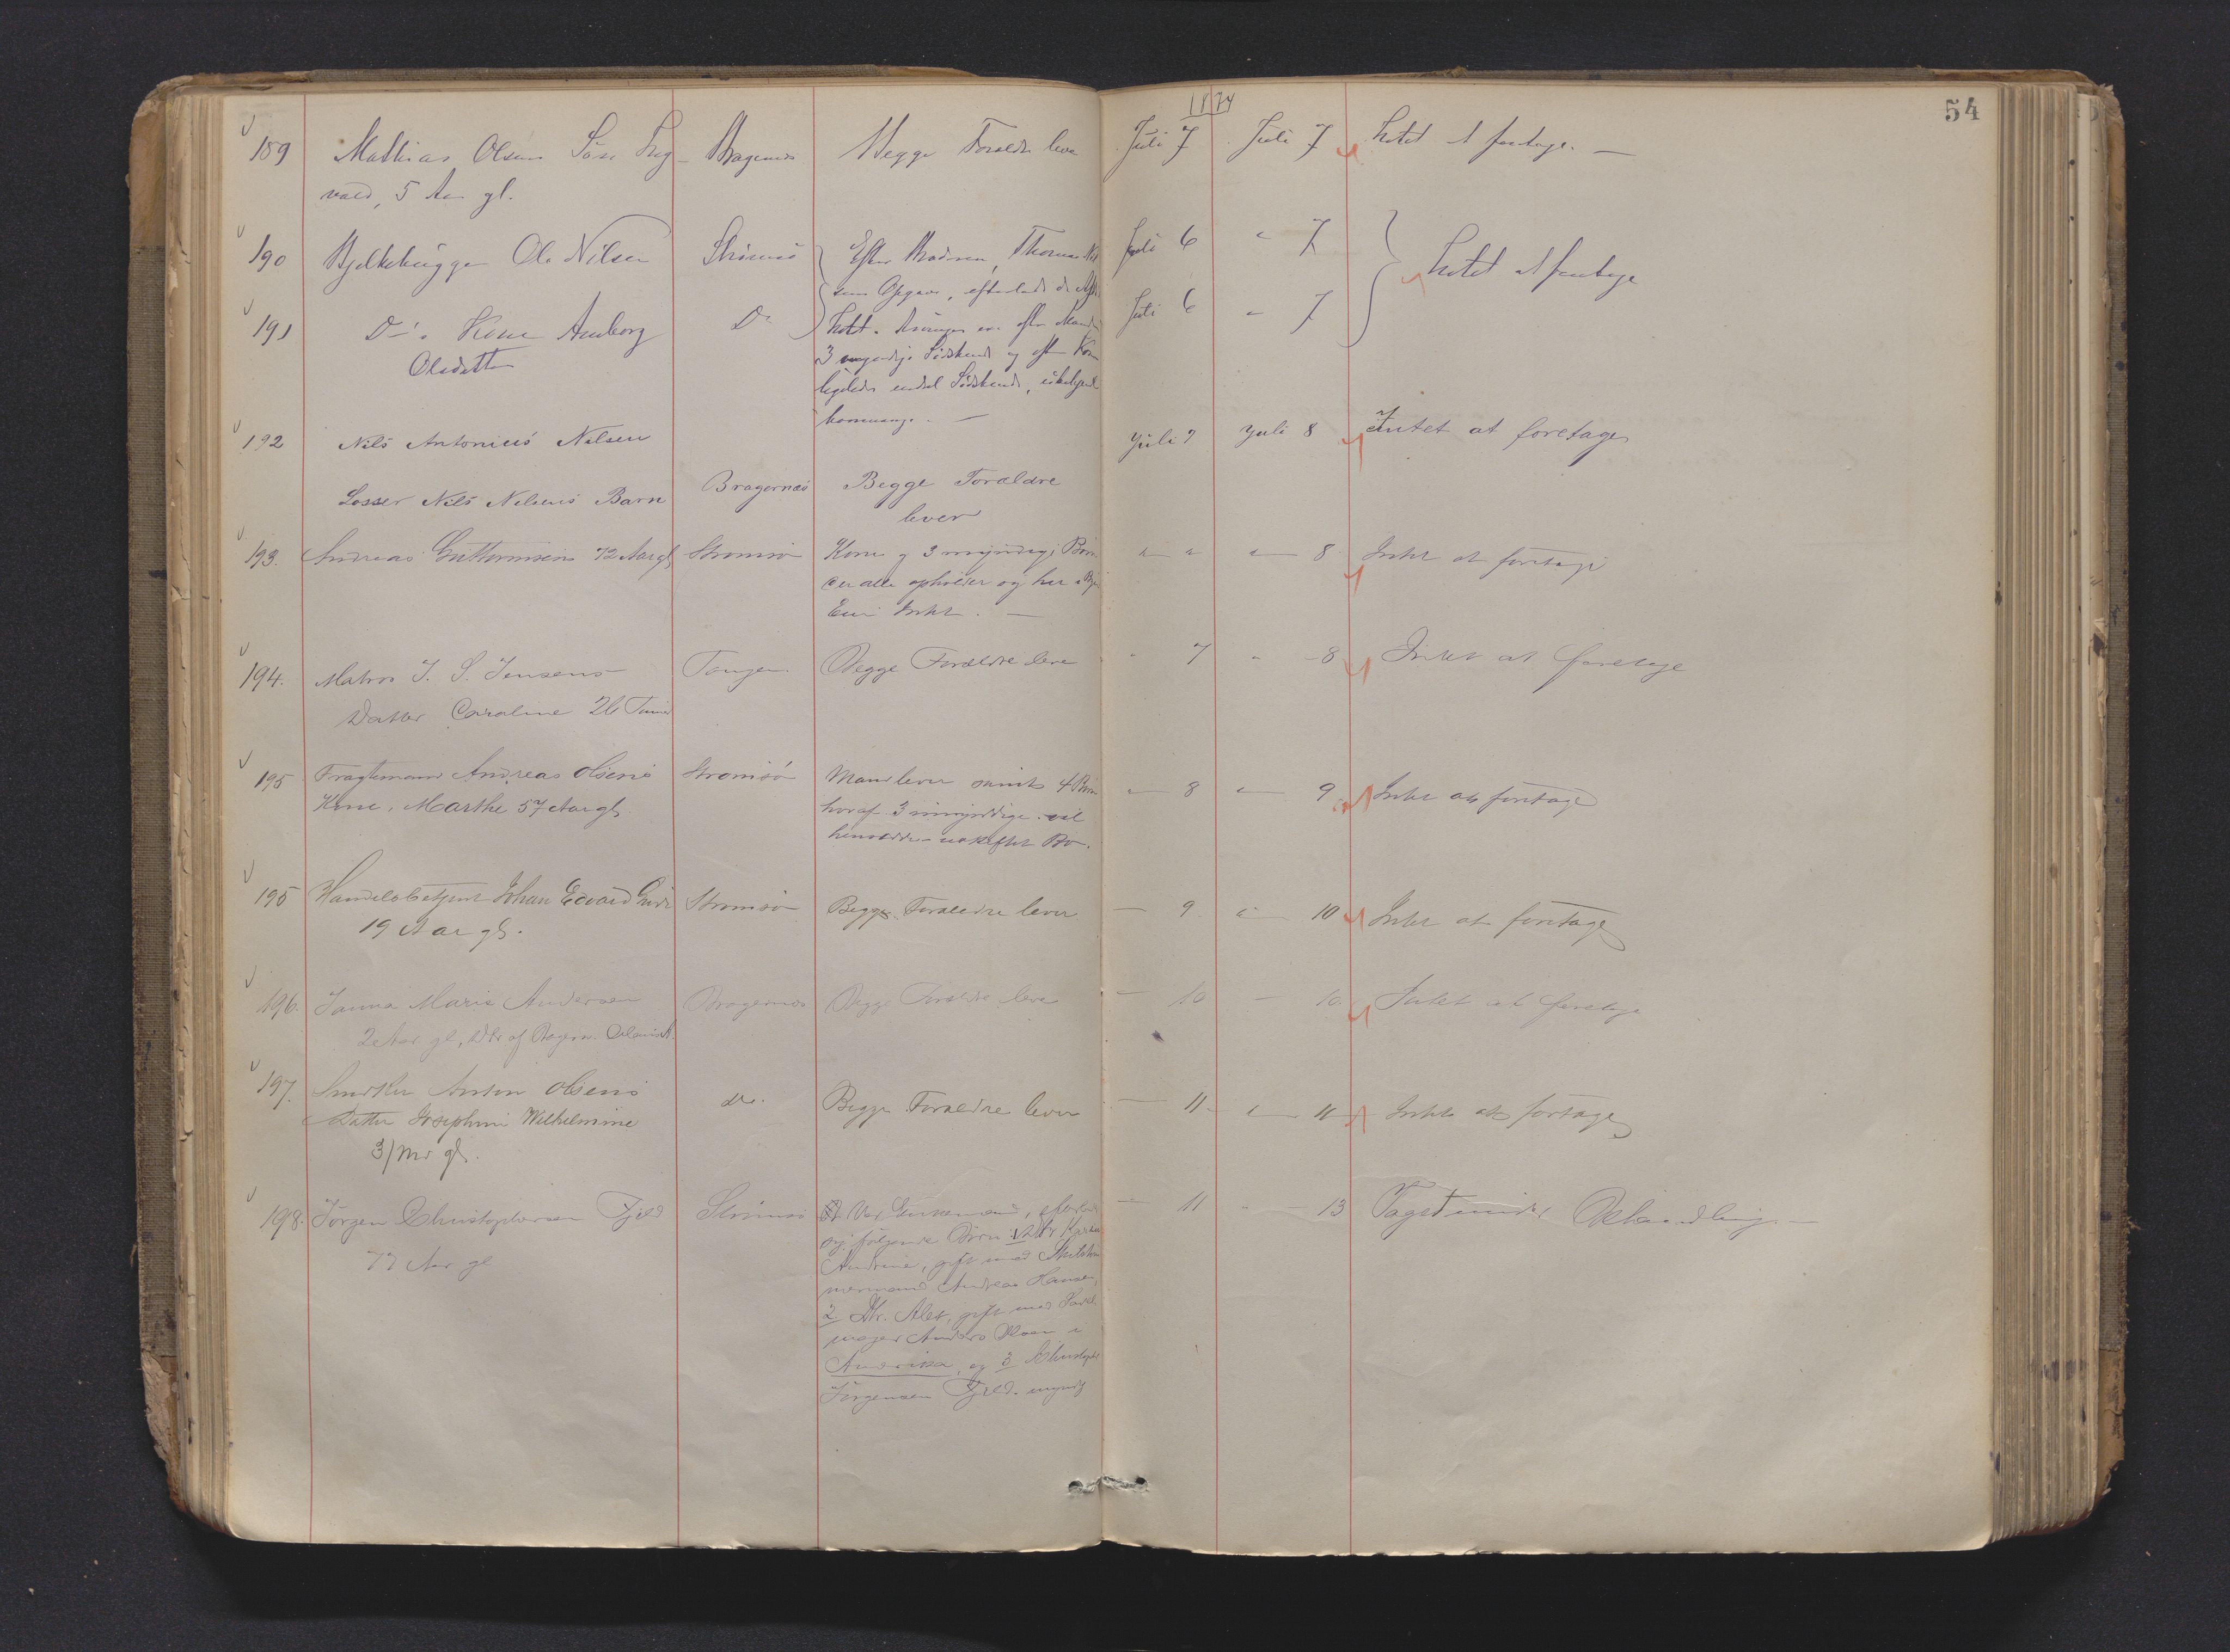 1874
54
189 Mathias Olsens Søn Sig- Bragernes Begge Forældre leve Juli 7 Juli 7 Intet at foretage. —
vald, 5 Aar gl.
190 Bjelkehugger Ole Nilsen Strømsø Efter Broderen, Thomas Juli 6 " 7 Intet at foretage
sens Opgave, efterlode de Afd.
191 Do. Kone Anborg Do Intet. Arvinger er efter Manden Juli 6 " 7
Olsdatter 3 myndige Sødskende og efter Konen
ligeledes endel Sødskende,
192 Nils Antonius Nilsen Juli 7 Juli 8 Intet at foretage
Losser Nils Nilsens Barn Bragernæs Begge Forældre
lever
193. Andreas Guttormsen 72 Aar gl Strømsø Kone og 3 myndige Børn " " " 8 Intet at foretage
Eier Intet. —
194. Matros J. S. Jensens Tangen. Begge Forældre leve " 7 " 8 Intet at foretage
Datter Caroline 26 Timer
195 Fragtemand Andreas Olsens Strømsø Mand lever samt 4 Børn " 8 " 9 Intet at foretage
Kone, Marthe 57 Aar gl. hvoraf 3 umyndige. vil
hensidde i uskiftet Bo.
195 Handelsbetjent Johan Edvard Strømsø Begge Forældre lever — 9 " 10 Intet at foretage
19 Aar gl.
196. Janna Marie Andersen Bragernes Begge Forældre leve — 10 — 10. Intet at foretage
2 Aar gl, Dtr af
197. Snedker Anton Olsens do. Begge Forældre lever — 11. " 11 Intet at foretage
Datter Josephine Wilhelmine
3/ Mdr gl.
198. Jørgen Christophersen Fjeld Strømsø Var Enkemand, efterlod — 11 " 13 Tages under Behandling —
77 Aar gl sig følgende Børn 1 Dtr
Andrine, gift med
Andreas Hansen,
2 Dtr. Alet, gift med
mager Anders Moen i
Amerika, og 3 Christopher
Jørgensen Fjeld. myndig